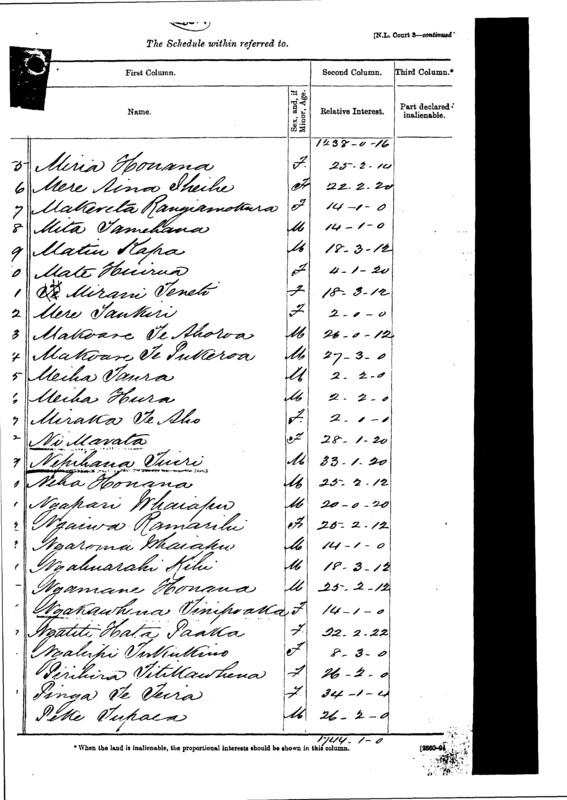 [N.L. Court 3—continued
The Schedule within referred to.
First Column. Second Column. Third Column.*
Name. Sex, and, if Minor, Age. Relative Interest. Part declared inalienable.
1238-0-16
5 Miria Honana F. 25-2-12
6 Mere Aina Iheihe F 22-2-20
7 Makereta Rangiamohura F 14-1-0
8 Mita Tamehana M 14-1-0
9 Matiu Kapa M 18-3-12
0 Mate Huirua F 4-1-20
1 Mirani Teneti F 18-3-12
2 Mere Taukiri F 2-0-0
3 Makoare Te Ahoroa M 26-0-12
4 Makoare Te Pukeroa M 27-3-0
5 Meiha Taura M 2-2-0
6 Meiha Hura M 2-2-0
7 Miraka Te Aho F. 2-1-0
Ni Mavata F 28-1-20
9 Nepihana Tuiri M 33-1-20
0 Neha Honana M 25-2-12
Ngapari Whaiapu M 20-0-20
Ngaiwa Ramarihi F 25-2-12
Ngaroma Whaiapu M 14-1-0
Ngahuarahi Kihi M 18-3-12
Ngamane Honana M 25-2-12
Ngakawhena Tinipoaka F 14-1-0
Ngatiti Hata Paaka F 22-2-22
Tukukino F 8-3-0
Pirihira Titikawhena F 26-2-0
Pinga Te Teira F 34-1-4
Peke Tupaea M 26-2-0
1744-1-0
* When the land is inalienable, the proportional interests should be shown in this column.